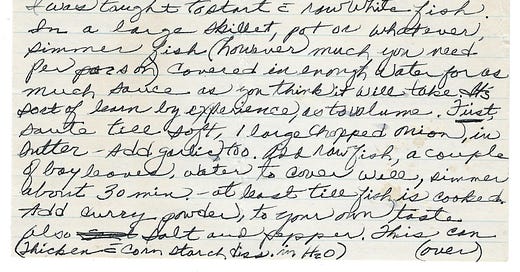 I was taught to start c̄ raw white fish.
In a large skillet, pot or whatever,
simmer fish (however much you need
per person) covered in enough water for as
much sauce as you think it will take. It's
sort of learn by experience, as to volume. First,
saute till soft, 1 large chopped onion, in
butter - add garlic, too. Add raw fish, a couple
of bay leaves, water to cover well, simmer
about 30 min. - at least till fish is cooked.
Add curry powder, to your own taste
also salt and pepper. This can
(thicken c̄ corn starch, diss. in H2O) (over)